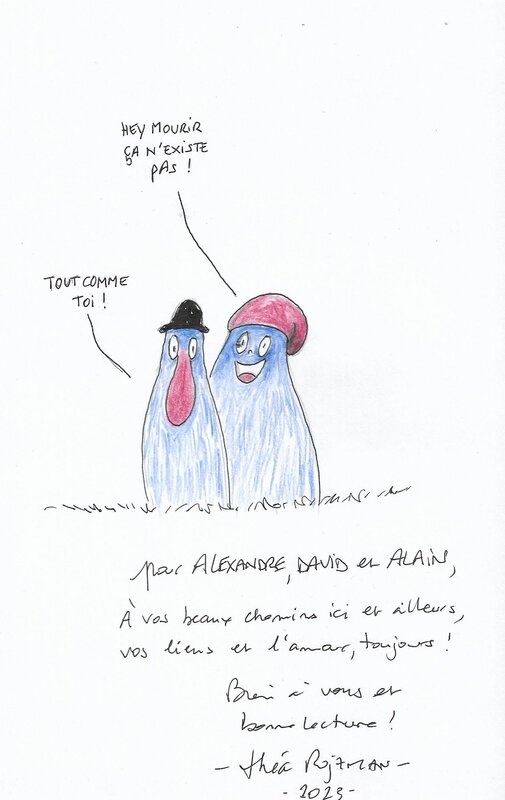 HEY MOURIR
ÇA N'EXISTE
PAS !
TOUT COMME
TOI !
pour ALEXANDRE, DAVID et ALAIN,
À vos beaux chemins ici et ailleurs,
vos liens et l'amour, toujours !
Bien à vous et
bonne lecture !
- théa ROJZMAN -
- 2023 -